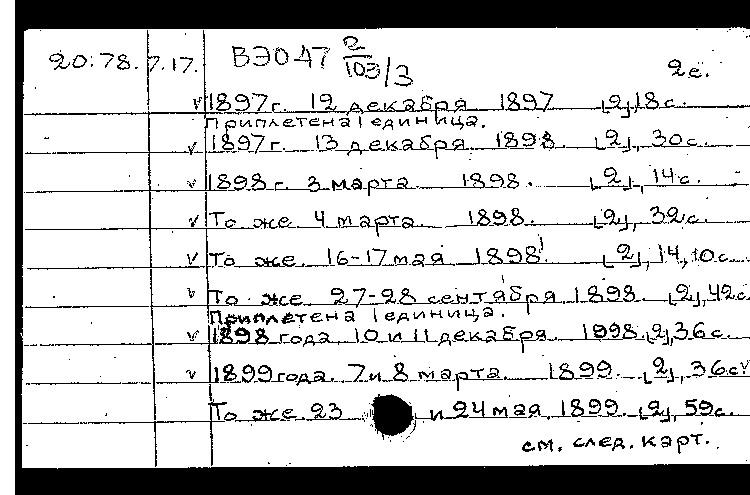 20:78. 7.17. ВЭ047 2/103/3
2е.
v 1897г. 12 декабря 1897 [2], 18 с.
Приплетена 1 единица.
v 1897г. 13 декабря 1898. [2], 30 с.
v 1898 г. 3 марта 1898. [2], 14 с.
v То же. 4 марта. 1898. [2], 32 с.
v То же. 16-17 мая 1898. [2], 14, 10 с.
v То же. 27-28 сентября 1898. [2], 42 с.
Приплетена 1 единица.
v 1898 года. 10 и 11 декабря. 1998. [2], 36 с.
v 1899 года. 7 и 8 марта. 1899. [2], 36 с. v
То же. 23 и 24 мая. 1899. [2], 59 с.
см. след. карт.